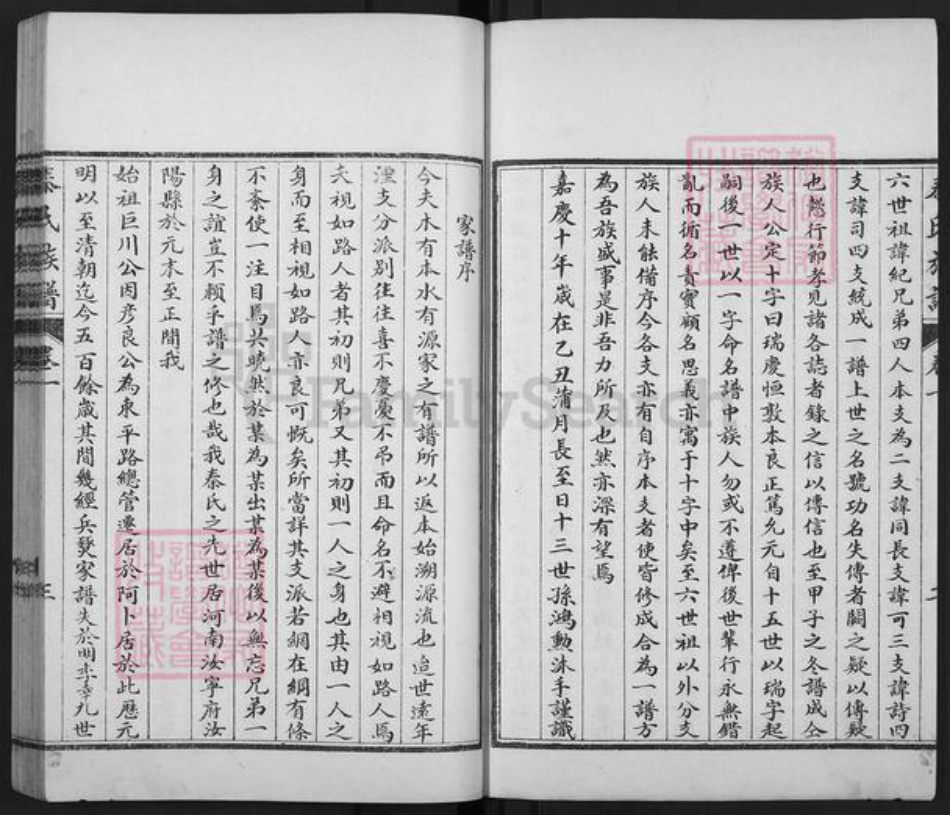 六世祖諱紀兄弟四人本支為二支諱同長支諱可三支諱詩四
支諱司四支統成一譜上世之名號功名失傳者闕之疑以傳疑
也懿行節孝見諸各誌者錄之信以傳信也至甲子之冬譜成仝
族人公定十字曰瑞慶恒敦本良正篤允元自十五世以瑞字起
嗣後一世以一字命名譜中族人勿或不遵俾後世輩行永無錯
亂而循名責實顧名思義亦寓于十字中矣至六世祖以外分支
族人未能備序今各支亦有自序本支者使皆修成合為一譜方
為吾族盛事是非吾力所及也然亦深有望焉
嘉慶十年歲在乙丑蒲月長至日十三世孫鴻勳沐手謹識
秦氏族譜 卷一 二
家譜序
今夫木有本水有源家之有譜所以返本始溯源流也迨世遠年
湮支分派別往往喜不慶憂不吊而且命名不避相視如路人焉
夫視如路人者其初則兄弟又其初則一人之身也其由一人之
身而至相視如路人亦良可慨矣所當詳其支派若網在綱有條
不紊使一注目焉共曉然於某為某出某為某後以無忘兄弟一
身之誼豈不賴乎譜之修也哉我秦氏之先世居河南汝寧府汝
陽縣於元末至正間我
始祖巨川公因彥良公為東平路總管遷居於阿卜居於此歷元
明以至清朝迄今五百餘歲其間幾經兵燹家譜失於明季幸九世
秦氏族譜 卷一 三
FamilySearch